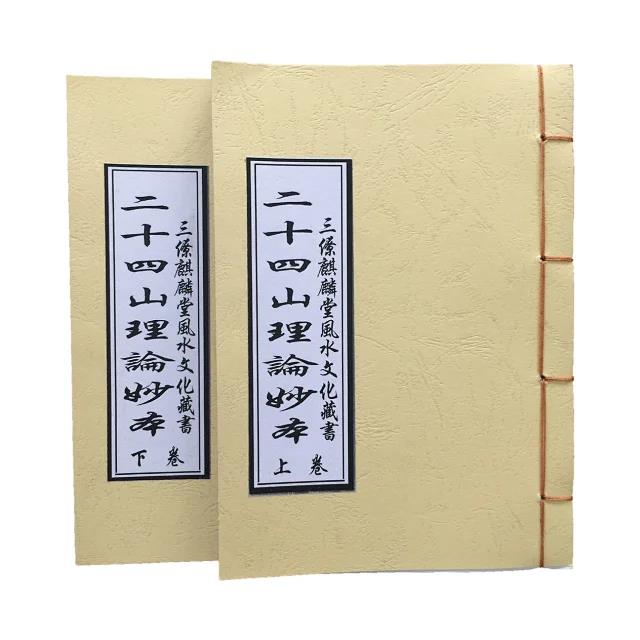 三僚麒麟堂風水文化藏書
二十四山理論妙本
卷上
三僚麒麟堂風水文化藏書
二十四山理論妙本
卷下